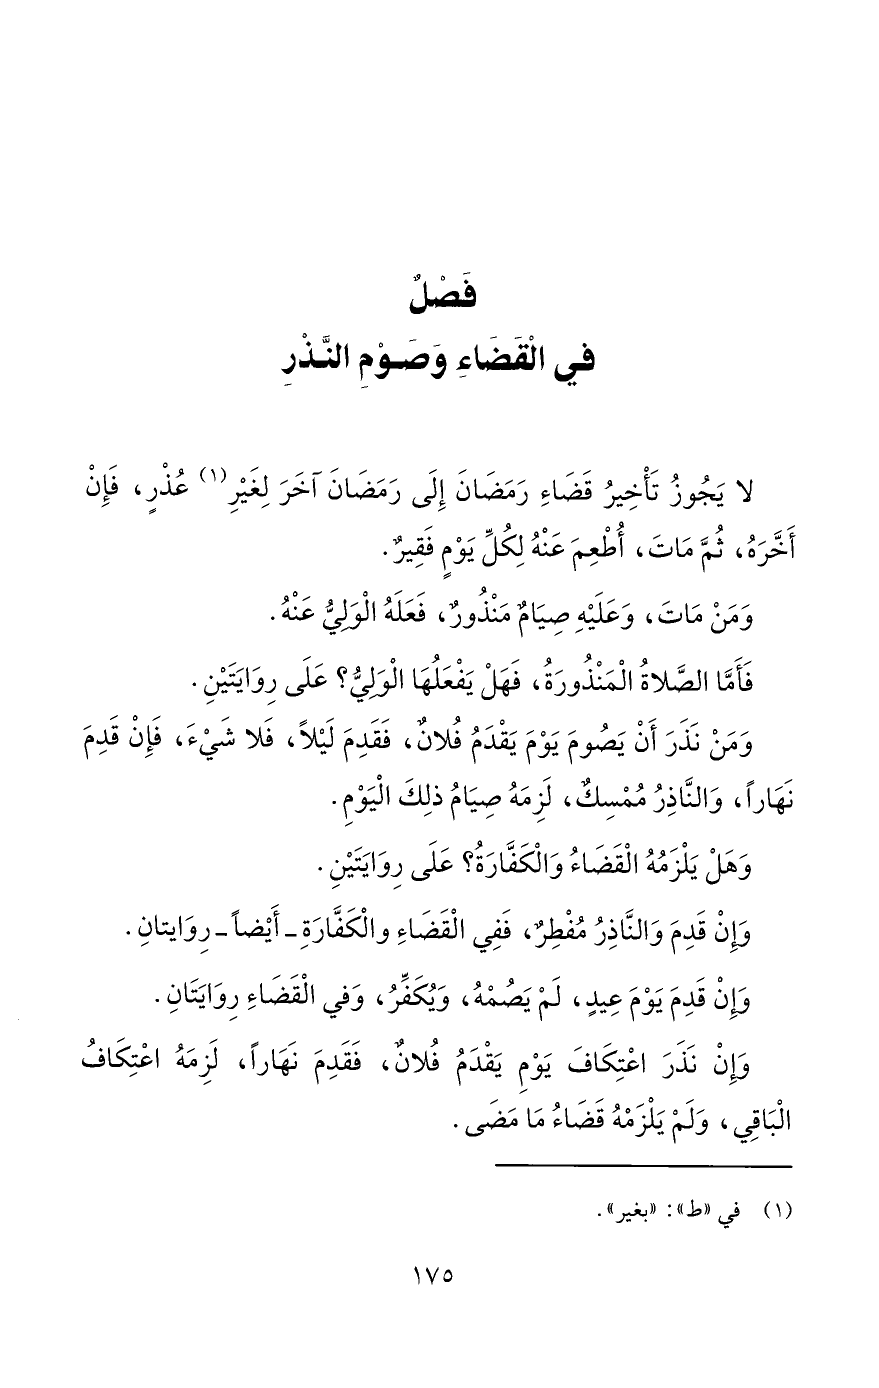 فَصْلٌ
في الْقَضَاءِ وَصَوْمِ النَّذْرِ
لا يَجُوزُ تَأْخِيرُ قَضَاءِ رَمَضَانَ إِلَى رَمَضَانَ آخَرَ لِغَيْرِ(١) عُذْرٍ، فَإِنْ
أَخَّرَهُ، ثُمَّ مَاتَ، أُطْعِمَ عَنْهُ لِكُلِّ يَوْمٍ فَقِيرٌ.
وَمَنْ مَاتَ، وَعَلَيْهِ صِيَامٌ مَنْذُورٌ، فَعَلَهُ الْوَلِيُّ عَنْهُ.
فَأَمَّا الصَّلاةُ الْمَنْذُورَةُ، فَهَلْ يَفْعَلُهَا الْوَلِيُّ؟ عَلَى رِوَايَتَيْنِ.
وَمَنْ نَذَرَ أَنْ يَصُومَ يَوْمَ يَقْدَمُ فُلانٌ، فَقَدِمَ لَيْلاً، فَلا شَيْءَ، فَإِنْ قَدِمَ
نَهَاراً، وَالنَّاذِرُ مُمْسِكٌ، لَزِمَهُ صِيَامُ ذلِكَ الْيَوْمِ.
وَهَلْ يَلْزَمُهُ الْقَضَاءُ وَالْكَفَّارَةُ؟ عَلَى رِوَايَتَيْنِ.
وَإِنْ قَدِمَ وَالنَّاذِرُ مُفْطِرٌ، فَفِي الْقَضَاءِ والْكَفَّارَةِ ـ أَيْضاً ـ رِوَايتانِ.
وَإِنْ قَدِمَ يَوْمَ عِيدٍ، لَمْ يَصُمْهُ، وَيُكَفِّرُ، وَفي الْقَضَاءِ رِوَايَتَانِ.
وَإِنْ نَذَرَ اعْتِكَافَ يَوْمِ يَقْدَمُ فُلانٌ، فَقَدِمَ نَهَاراً، لَزِمَهُ اعْتِكَافُ
الْبَاقِي، وَلَمْ يَلْزَمْهُ قَضَاءُ مَا مَضَى.
(١) في «ط»: «بغير».
١٧٥